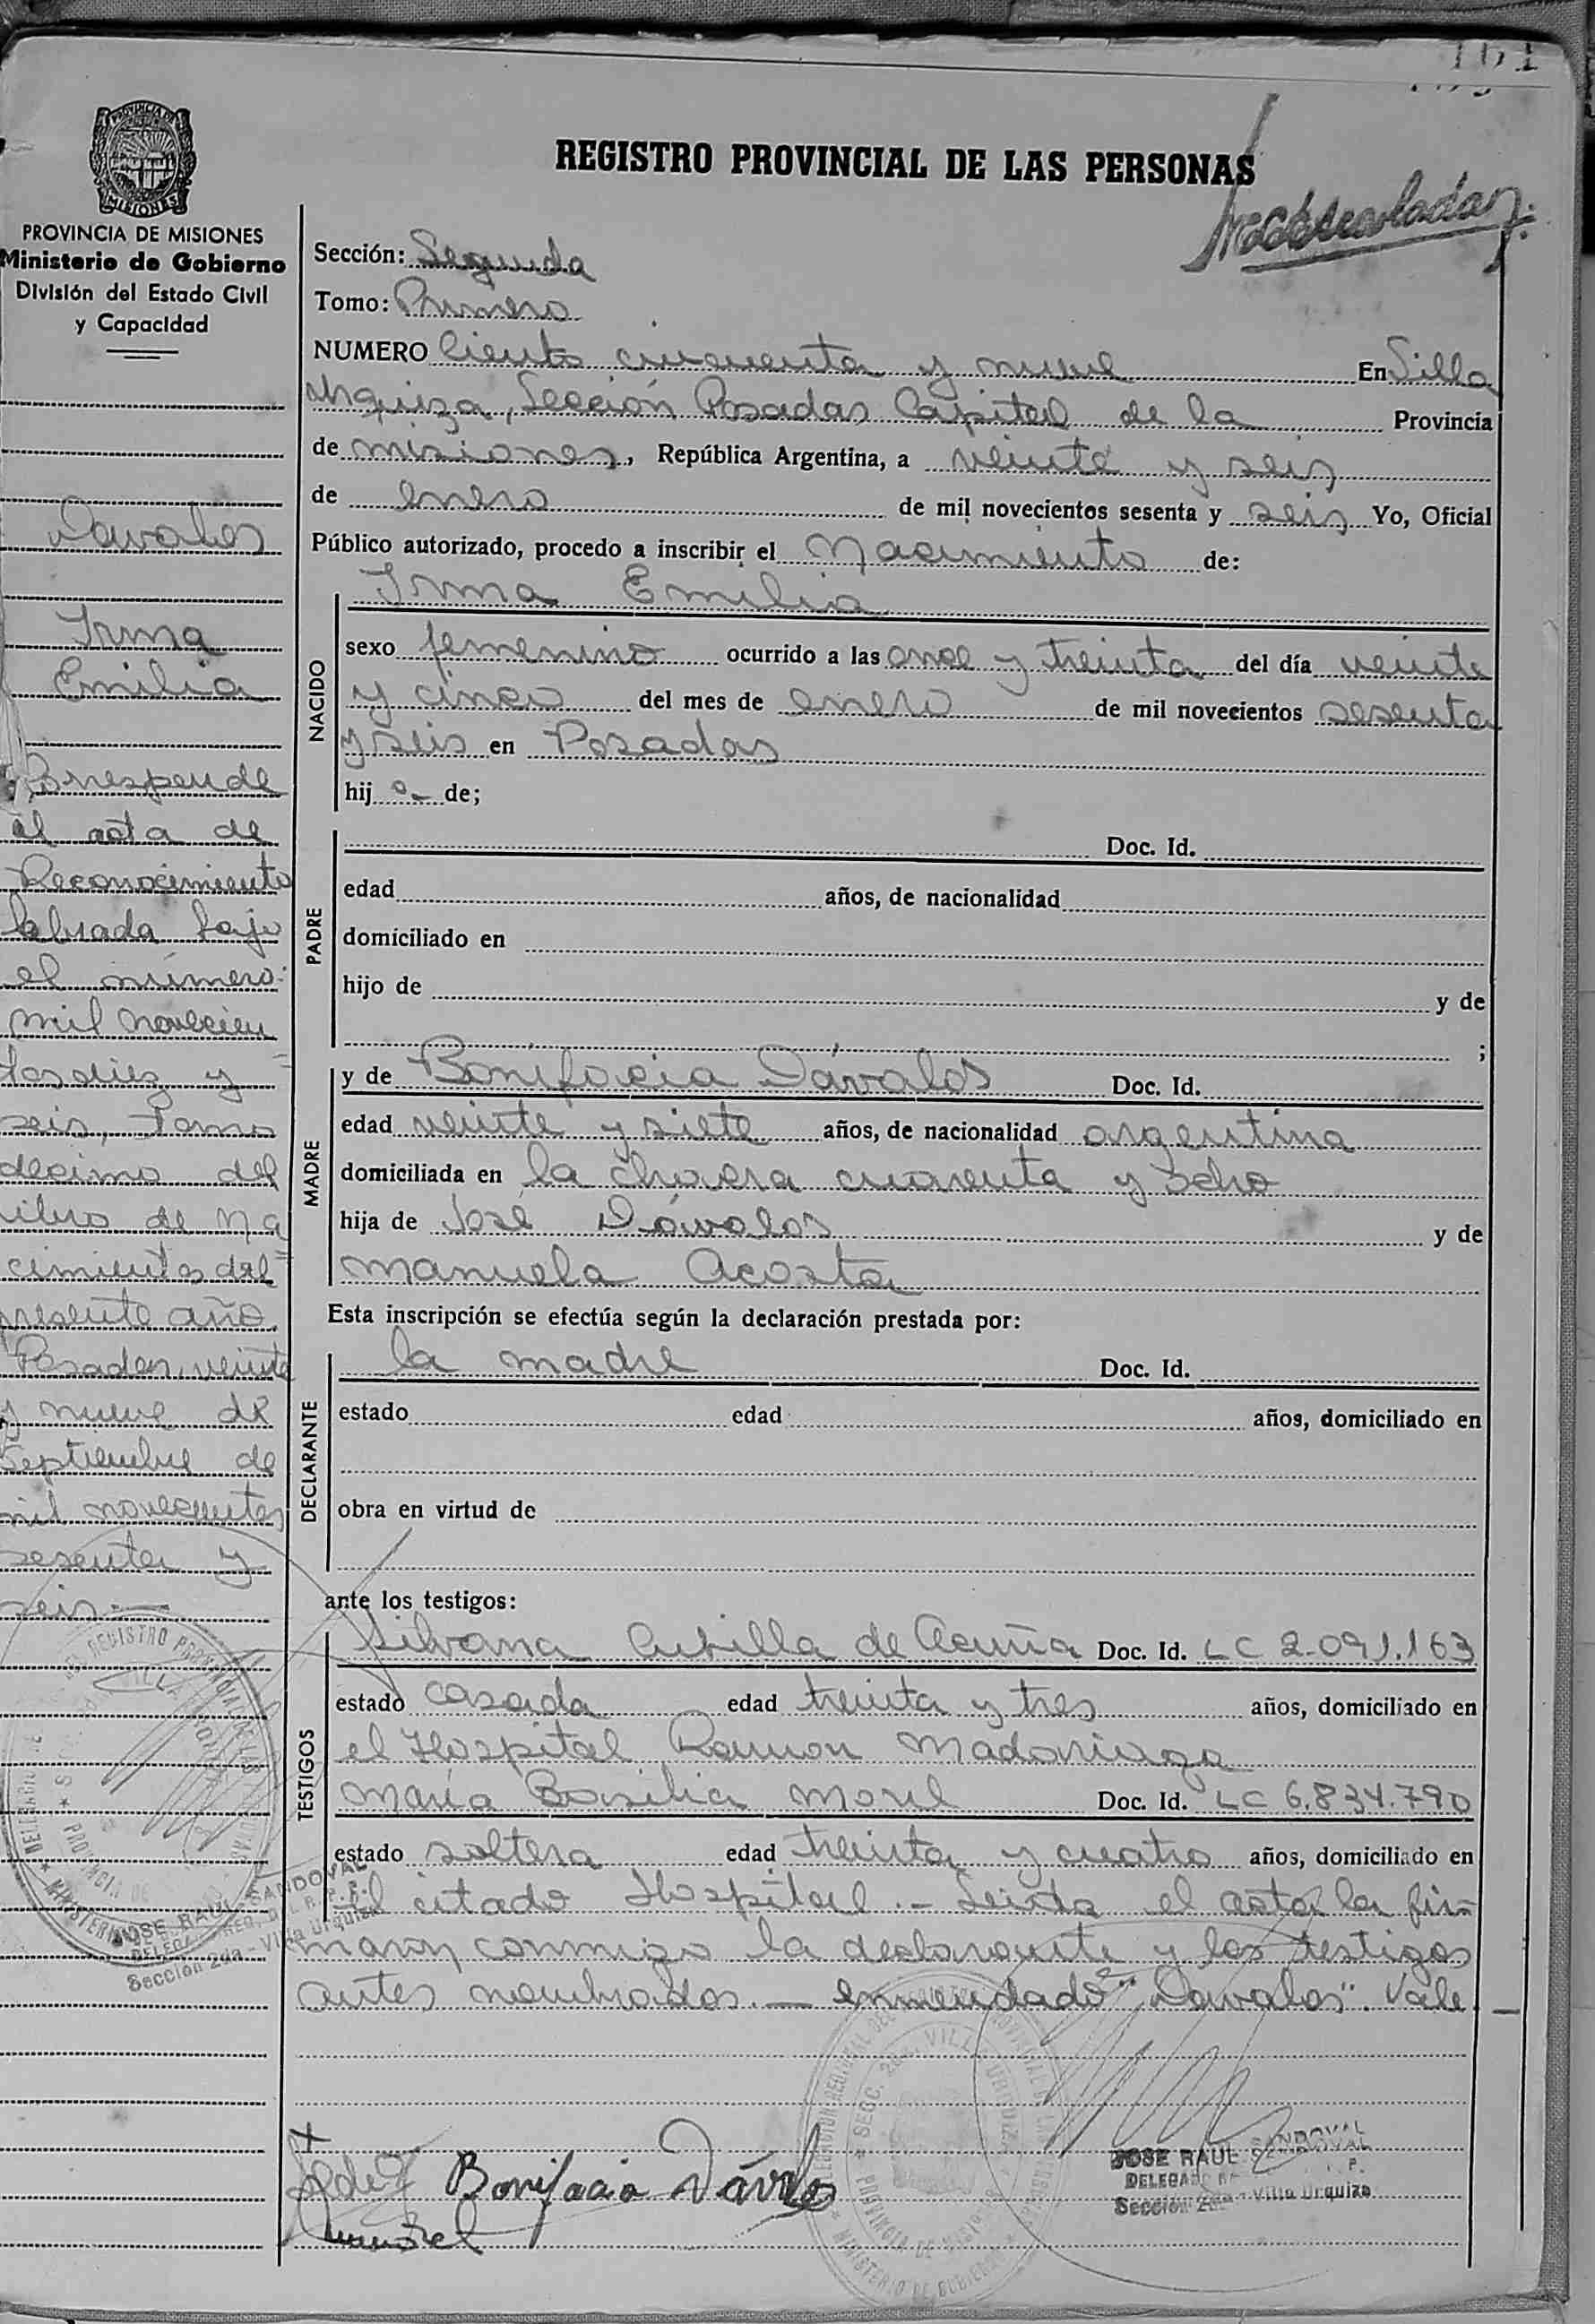 161
REGISTRO PROVINCIAL DE LAS PERSONAS
PROVINCIA DE MISIONES
Ministerio de Gobierno
División del Estado Civil
y Capacidad
Davalos
Irma
Emilia
Corresponde
al acta de
Reconocimiento
labrada bajo
el número:
mil novecien
tos diez y
seis, tomo
decimo del
libro de Na
cimientos del
presente año.
Posadas, veinte
y nueve de
Septiembre de
mil novecientos
sesenta y
seis.—
JOSE RAUL SANDOVAL
Sección 2da - Villa Urquiza
Sección: Segunda
Tomo: Primero
NUMERO Ciento cincuenta y nueve En Villa
Urquiza, Sección Posadas Capital de la Provincia
de misiones, República Argentina, a veinte y seis
de enero de mil novecientos sesenta y seis Yo, Oficial
Público autorizado, procedo a inscribir el Nacimiento de:
Irma Emilia
NACIDO
sexo femenino ocurrido a las once y treinta del día veinte
y cinco del mes de enero de mil novecientos sesenta
y seis en Posadas
hij a- de;
PADRE
Doc. Id.
edad años, de nacionalidad
domiciliado en
hijo de y de
;
MADRE
y de Bonifacia Dávalos Doc. Id.
edad veinte y siete años, de nacionalidad argentina
domiciliada en la chacra cuarenta y ocho
hija de José Dávalos y de
manuela Acosta
Esta inscripción se efectúa según la declaración prestada por:
DECLARANTE
la madre Doc. Id.
estado edad años, domiciliado en
obra en virtud de
ante los testigos:
TESTIGOS
Silvana Cubilla de Acuña Doc. Id. LC 2.091.163
estado casada edad treinta y tres años, domiciliado en
el Hospital Ramon Madariaga
María Basilia Morel Doc. Id. LC 6.834.790
estado soltera edad treinta y cuatro años, domiciliado en
el citado Hospital.- Leida el acta la fir-
maron conmigo la declarante y los testigos
antes nombrados.— enmendado "Davalos". Vale
Bonifacia Dávalos
JOSE RAUL SANDOVAL
Sección 2da - Villa Urquiza